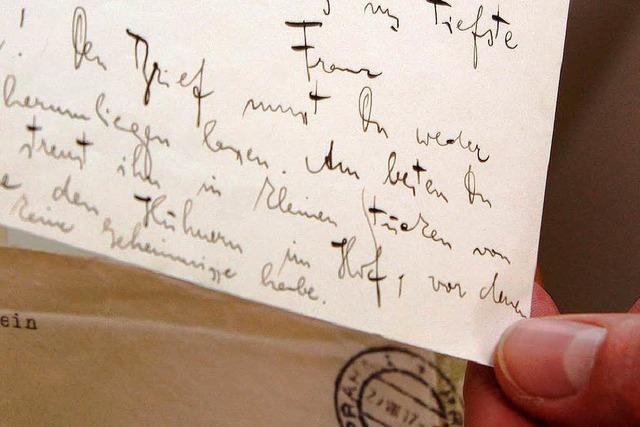 tiefste
Franz
! Den Brief mußt Du weder
herumliegen lassen. Am besten Du
streust ihn in kleinen Stücken von
e den Hühnern im Hof, vor denen
keine Geheimnisse habe.
ein
PRAHA